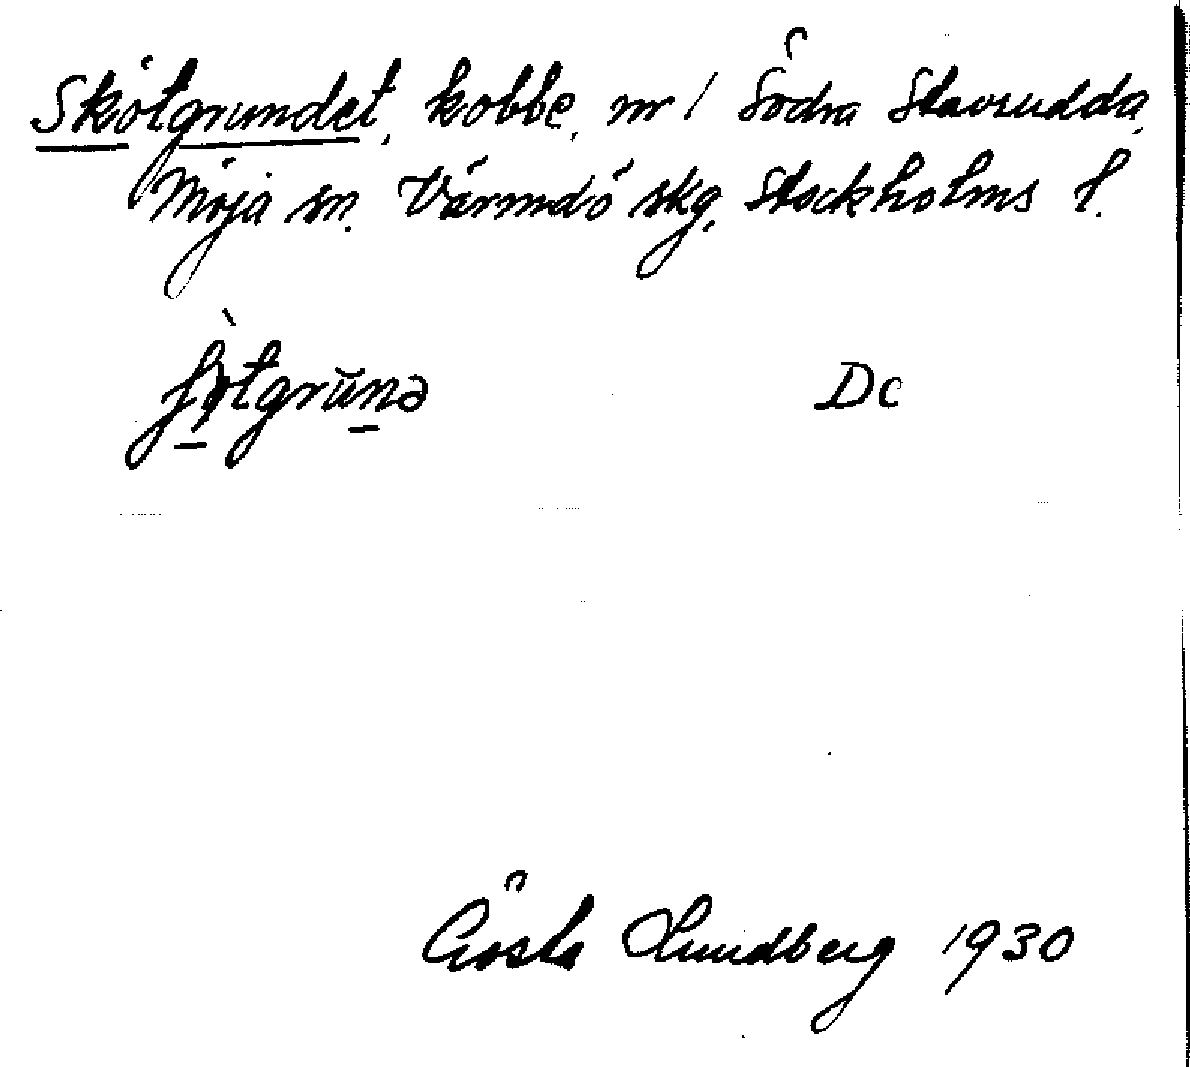 Skötgrundet, kobbe, nr 1 Södra Stavsudda,
Möja sn. Värmdö skg, Stockholms l.
Dc
Gösta Lundberg 1930